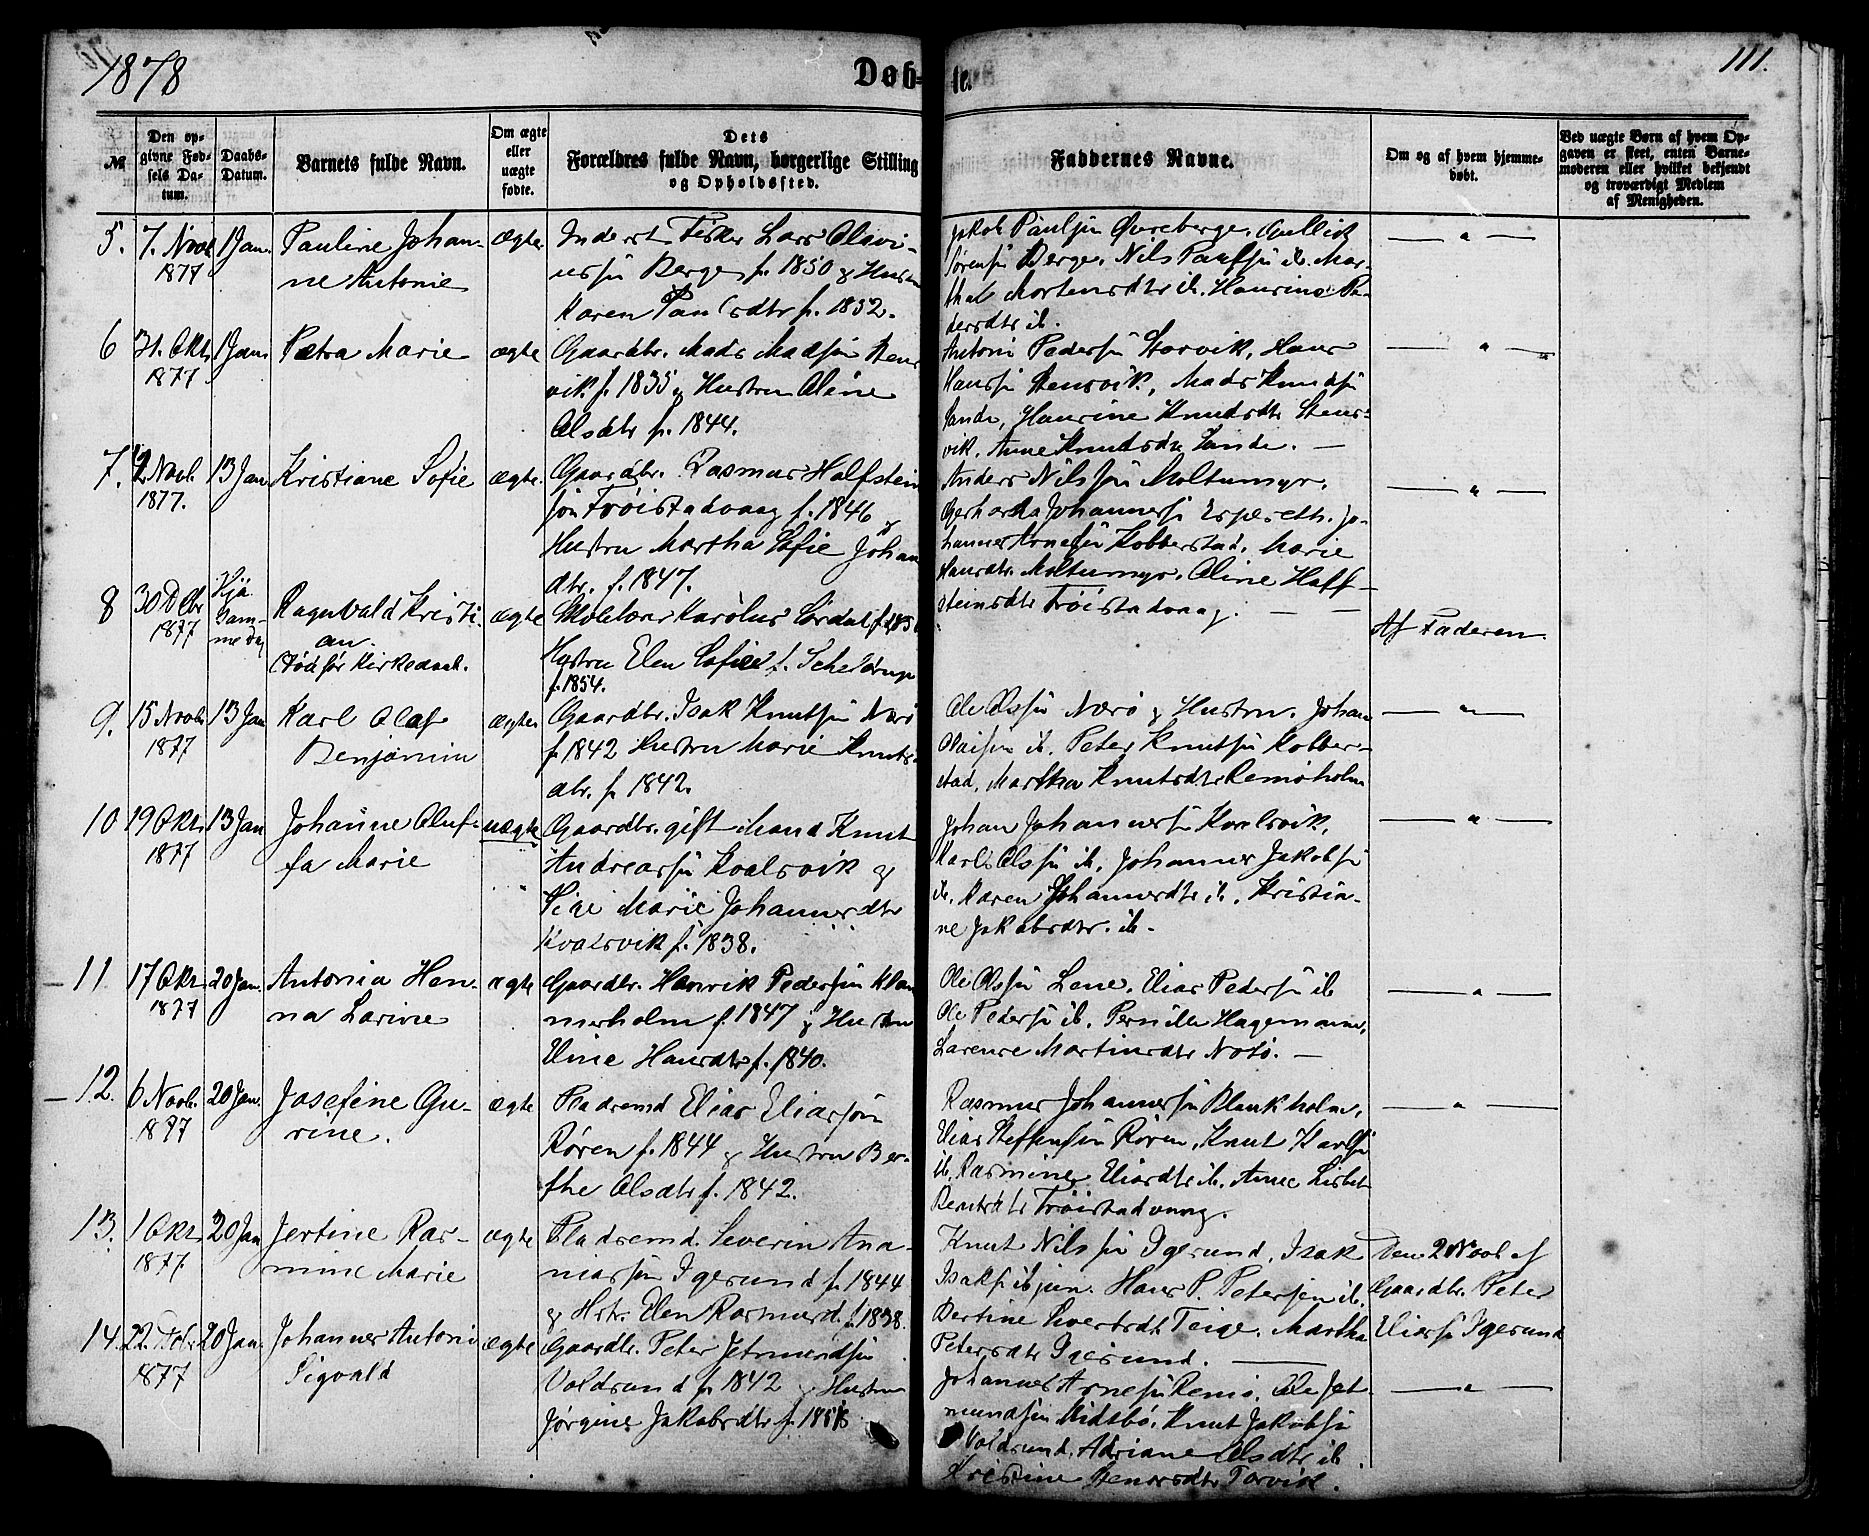 1878
Døb-
te.
111.
№
Den op-
givne Fød-
sels Da-
tum.
Daabs-
Datum.
Barnets fulde Navn.
Om ægte
eller
uægte
fødte.
Dets
Forældres fulde Navn, borgerlige Stilling
og Opholdssted.
Faddernes Navne.
Om og af hvem hjemme-
døbt.
Ved uægte Børn af hvem Op-
gaven er skeet, enten Barne-
moderen eller hvilket bekjendt
og troværdigt Medlem
af Menigheden.
5.
7. Novb
1877
1 Jan.
Pauline Johan-
ne Antonie
ægte
Inderst Fisker Lars Olavi-
ussøn Berge f. 1850 & Hustru
Karen Paulsdtr f. 1852.
Jakob Paulsøn Øvreberge, Gullik
Sørensøn Berge, Nils Paulsøn ib. Mar-
tha Mortensdtr ib. Hansine Pe-
dersdtr ib.
6
31. Okt.
1877
1 Jan.
Petra Marie
ægte
Gaardbr. Mads Madsøn Stens
vik f. 1835 & Hustru Oline
Olsdtr f. 1844.
Antoni Pedersøn Storvik, Hans
Hanssøn Stensvik, Mads Knudsøn
Sande, Hansine Knudsdtr Stens-
vik, Anne Knudsdtr Sande.
7.
12 Novb.
1877.
13 Jan
Kristiane Sofie
ægte.
Gaardbr. Rasmus Halfstein
søn Frøistadvaag f. 1846 &
Hustru Martha Sofie Johan
dtr. f. 1847.
Anders Nilssøn Moltumyr.
Gerhard Johannessøn Espeseth. Jo-
hannes Arnesøn Kobberstad. Marie
Hansdtr Moltumyr. Oline Half-
steinsdtr Frøistadvaag.
8
30 Decbr
1877
Hje
Ragnvald Kristi-
an.
død før Kirkedaab.
ægte
Skolelærer Karolus Lørdal f. 1850
Hustru Elen Sofie f. Schelderup
f. 1854.
Af Faderen.
9.
15 Novb
1877
13 Jan
Karl Olaf
Benjamin
ægte
Gaardbr. Isak Knutsøn Nærø
f 1842 Hustru Marie Knuts-
dtr. f. 1842.
Ole Olssøn Nærø & Hustru. Johan
ib. Peter Knutsøn Kobber-
stad, Martha Knutsdtr Remøholm
10
19 Okt.
1877
13 Jan
Johanne Oluf-
fa Marie
uægte
Gaardbr. gift Mand Knut
Andreassøn Kvalsvik &
Pige Marie Johannesdtr
Kvalsvik f. 1838.
Johan Johannessøn Kvalsvik,
Karl Olssøn ib. Johannes Jakobsøn
ib. Karen Johannesdtr ib., Kristia-
ne Jakobsdtr. ib.
11.
17 Okt.
1877
20 Jan.
Antonia Han-
na Larine
ægte
Gaardbr. Henrik Pedersøn Klom
merholm f. 1847 & Hustru
Eline Hansdtr f. 1840.
Ole Olssøn Lene. Elias Pedersøn ib
Ole Pedersøn ib. Pernille Hagemann,
Larense Martinsdtr Notø.
12.
6 Novb.
1877
20 Jan.
Josefine Gu-
rine.
ægte
Pladsemd Elias Eliassøn
Røren f. 1844 & Hustru Ber-
the Olsdtr f. 1842.
Rasmus Johannessøn Blankholm,
Elias Steffensøn Røren, Knut Karlsøn
ib. Rasmine Eliasdtr ib. Anne Lisbet
Berntsdtr Frøistadvaag.
13.
1 Okt.
1877.
20 Jan
Jertine Ras-
mine Marie
ægte
Pladsemd. Severin Ana-
niassøn Igesund f. 1844
& Hstr. Elen Rasmusd. f. 1838.
Knut Nilssøn Igesund, Isak
Isaksøn ib jun. Hans P. Petersen ib.
Bertine Sivertsdtr Teige. Martha
Petersdtr Igesund.
Den 2 Novb af
Gaardbr. Peter
Eliassøn Igesund
14.
22.
1877
20 Jan.
Johannes Antoni
Sigvald
ægte
Gaardbr. Peter Jetmundsøn
Voldsund f. 1842 & Hustru
Jørgine Jakobsdtr f.
Johannes Arnesøn Remø. Ole Jet-
mundsøn Midsbø. Knut Jakobsøn
Voldsund. Adriane Olsdtr ib
Kristine Stensdtr Torvik.